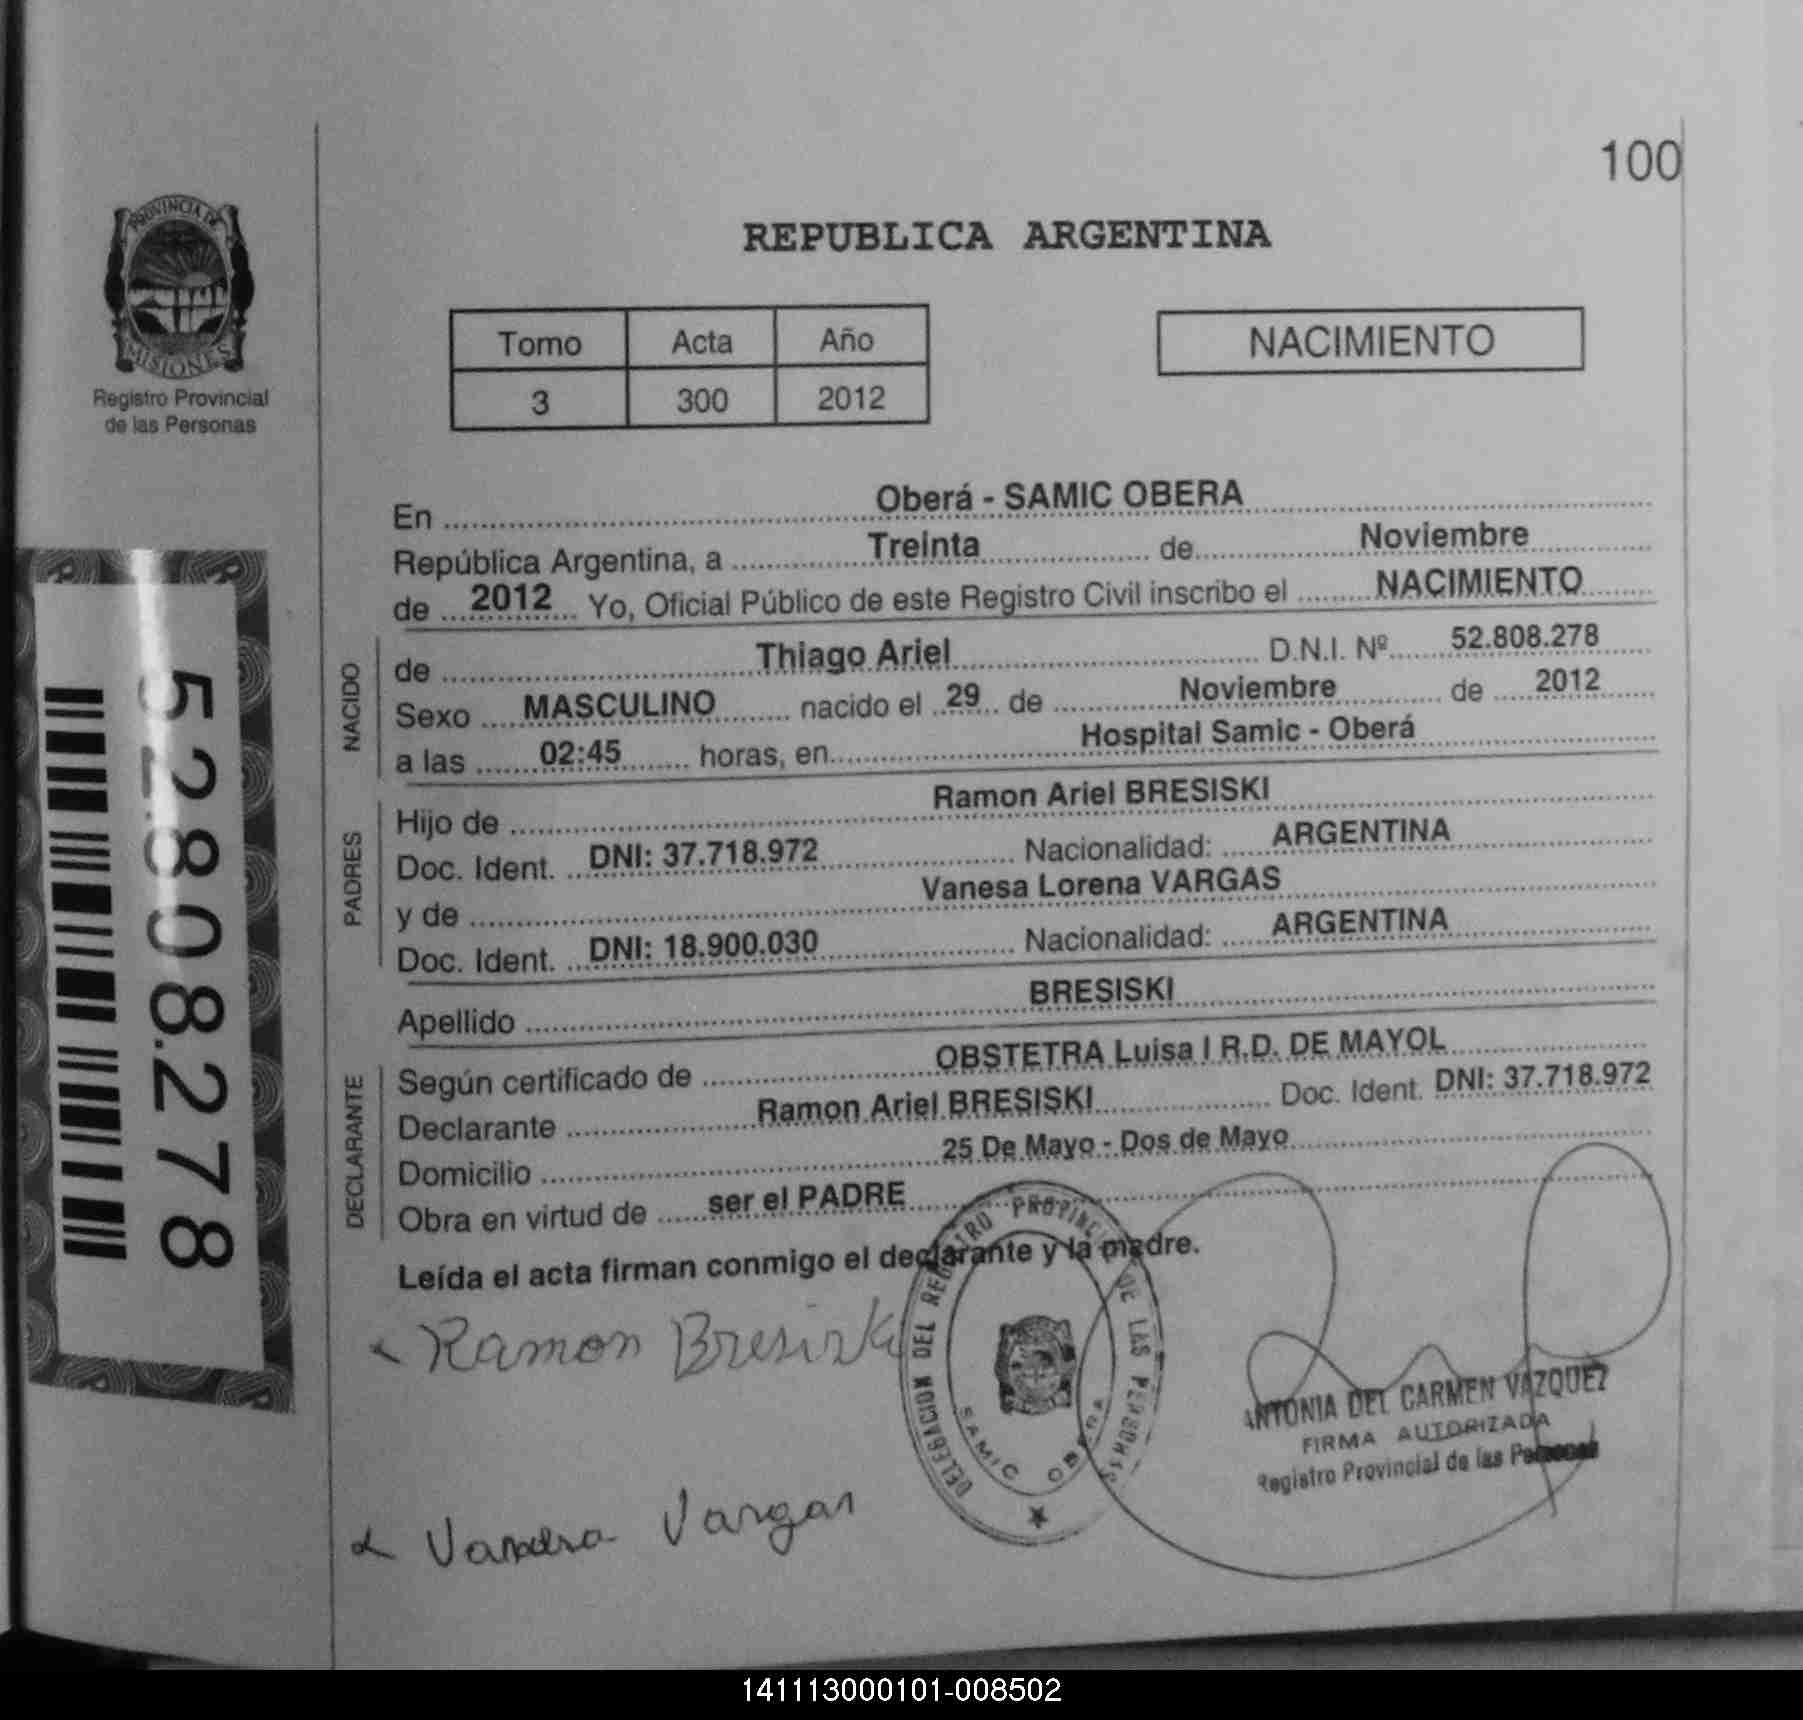 100
PROVINCIA DE
MISIONES
Registro Provincial
de las Personas
REPUBLICA ARGENTINA
Tomo Acta Año
3 300 2012
NACIMIENTO
En Oberá - SAMIC OBERA
República Argentina, a Treinta de Noviembre
de 2012 Yo, Oficial Público de este Registro Civil inscribo el NACIMIENTO
NACIDO
de Thiago Ariel D.N.I. Nº 52.808.278
Sexo MASCULINO nacido el 29 de Noviembre de 2012
a las 02:45 horas, en Hospital Samic - Oberá
PADRES
Hijo de Ramon Ariel BRESISKI
Doc. Ident. DNI: 37.718.972 Nacionalidad: ARGENTINA
y de Vanesa Lorena VARGAS
Doc. Ident. DNI: 18.900.030 Nacionalidad: ARGENTINA
Apellido BRESISKI
DECLARANTE
Según certificado de OBSTETRA Luisa I R.D. DE MAYOL
Declarante Ramon Ariel BRESISKI Doc. Ident. DNI: 37.718.972
Domicilio 25 De Mayo - Dos de Mayo
Obra en virtud de ser el PADRE
Leída el acta firman conmigo el declarante y la madre.
52.808.278
Ramon Bresiski
Vargas
DELEGACION DEL REGISTRO PROVINCIAL DE LAS PERSONAS
SAMIC OBERA
ANTONIA DEL CARMEN VAZQUEZ
FIRMA AUTORIZADA
Registro Provincial de las Personas
141113000101-008502